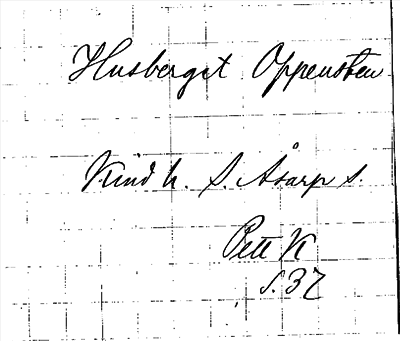 Husberget Oppensten
Kind h. S. Åsarp s.
Pett K
s. 37